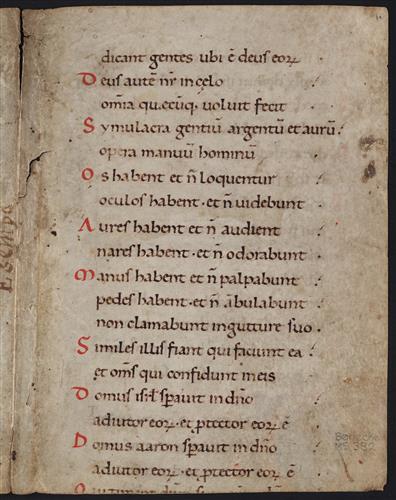 dicant gentes ubi ē deus eoꝝ
Deus autē nr̄ in celo
om̄ia quęcūq; uoluit fecit
Symulacra gentiū argentū et aurū.
opera manuū hominū
Os habent et n̄ loquentur
oculos habent · et n̄ uidebunt
Aures habent et n̄ audient
nares habent · et n̄ odorabunt
Manus habent et n̄ palpabunt
pedes habent · et n̄ ābulabunt
non clamabunt ingutture suo .
Similes illis fiant qui faciunt ea
et om̄s qui confidunt in eis
Domus isr̄l sperauit in dn̄o
adiutor eoꝝ · et ꝓtector eoꝝ ē
Domus aaron sperauit in dn̄o
adiutor eoꝝ · et ꝓtector eoꝝ ē